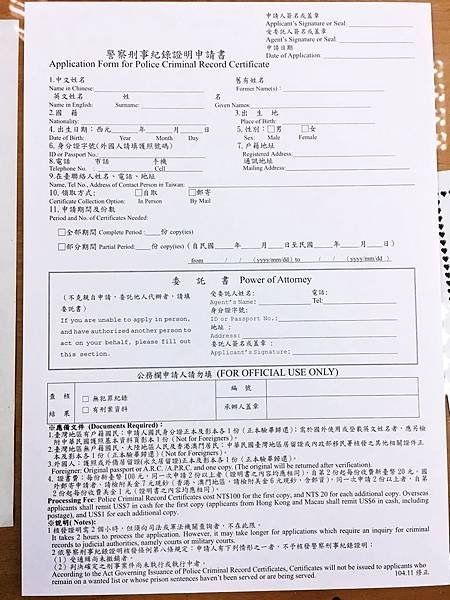 申請人簽名或蓋章
Applicant's Signature or Seal
受委託人簽名或蓋章
Agent's Signature or Seal:
申請日期
Date of Application:
警察刑事紀錄證明申請書
Application Form for Police Criminal Record Certificate
1.中文姓名 舊有姓名
Name in Chinese: Former Name(s):
英文姓名 姓 名
Name in English: Surname: Given Names:
2.國 籍 3.出 生 地
Nationality: Place of Birth:
4.出生日期:西元 年 月 日 5.性別:□男 □女
Date of Birth: Year Month Day Sex: Male Female
6.身分證字號(外國人請填護照號碼) 7.戶籍地址
ID or Passport No.: Registered Address:
8.電話 市話 手機 通訊地址
Telephone No. : Cell Mailing Address:
9.在臺聯絡人姓名、電話、地址
Name, Tel No., Address of Contact Person in Taiwan:
10.領取方式: □自取 □郵寄
Certificate Collection Option: In Person By Mail
11.申請期間及份數
Period and No. of Certificates Needed:
□全部期間 Complete Period : 份 copy(ies)
□部分期間 Partial Period: 份 copy(ies) (自民國 年 月 日至民國 年 月 日)
from / / (yyyy/mm/dd) to / / (yyyy/mm/dd )
委 託 書 Power of Attorney
(不克親自申請,委託他人代辦者,請填委託書)
If you are unable to apply in person, and have authorized another person to act on your behalf, please fill out this section.
受委託人姓名: 電話:
Agent's Name: Tel:
身分證字號:
ID or Passport No.:
地址 :
Address:
委託人簽名或蓋章 :
Applicant's Signature:
公務欄申請人請勿填 (FOR OFFICIAL USE ONLY)
查 核 結 果
□ 無犯罪紀錄
□ 有刑案資料
編 號
承辦人蓋章
※應備文件 (Documents Required):
1.臺灣地區有戶籍國民:申請人國民身分證正本及影本各1份(正本驗畢歸還);需於國外使用或登載英文姓名者,應另檢
附中華民國護照基本資料頁影本1份 (Not for Foreigners)。
2.臺灣地區無戶籍國民、大陸地區人民及香港澳門居民:中華民國臺灣地區居留證或內政部移民署核發之其他相關證件正
本及影本各1份(正本驗畢歸還) (Not for Foreigners)。
3.外國人:護照或外僑居留證(永久居留證)正本及影本各1份(正本驗畢歸還)。
Foreigner: Original passport or A.R.C. /A.P.R.C. and one copy. (The original will be returned after verification).
4. 證書費:每份新臺幣100元,同一次申請2份以上者(證明書之內容均應相同),自第2份起每份收費新臺幣20元。國
Processing Fee: Police Criminal Record Certificates cost NT$100 for the first copy, and NT$ 20 for each additional copy. Overseas
applicants shall remit US$7 in cash for the first copy (applicants from Hong Kong and Macau shall remit US$6 in cash, including
postage), and US$1 for each additional copy.
※說明( Notes):
1核發證明需2個小時,但須向司法或軍法機關查詢者,不在此限。
It takes 2 hours to process the application. However, it may take longer for applications which require an inquiry for criminal
records to judicial authorities, namely courts or military courts.
2依警察刑事紀錄證明核發條例第八條規定:申請人有下列情形之一者,不予核發警察刑事紀錄證明:
(1)受通緝尚未撤銷者。
(2)判決確定之刑事案件尚未執行或執行中者。
According to the Act Governing Issuance of Police Criminal Record Certificates, Certificates will not be issued to applicants who
remain on a wanted list or whose prison sentences haven't been served or are being served.
104.11 修正